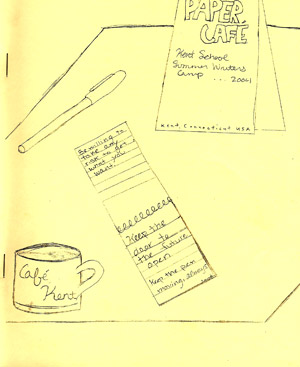 PAPER
CAFÉ
Kent School
Summer Writers
Camp ... 2004
Kent, Connecticut USA
Be willing to
take any
risk to get
what you
want.
Keep the
door to
the future
open
Keep the pen
moving, always
Café
Kent